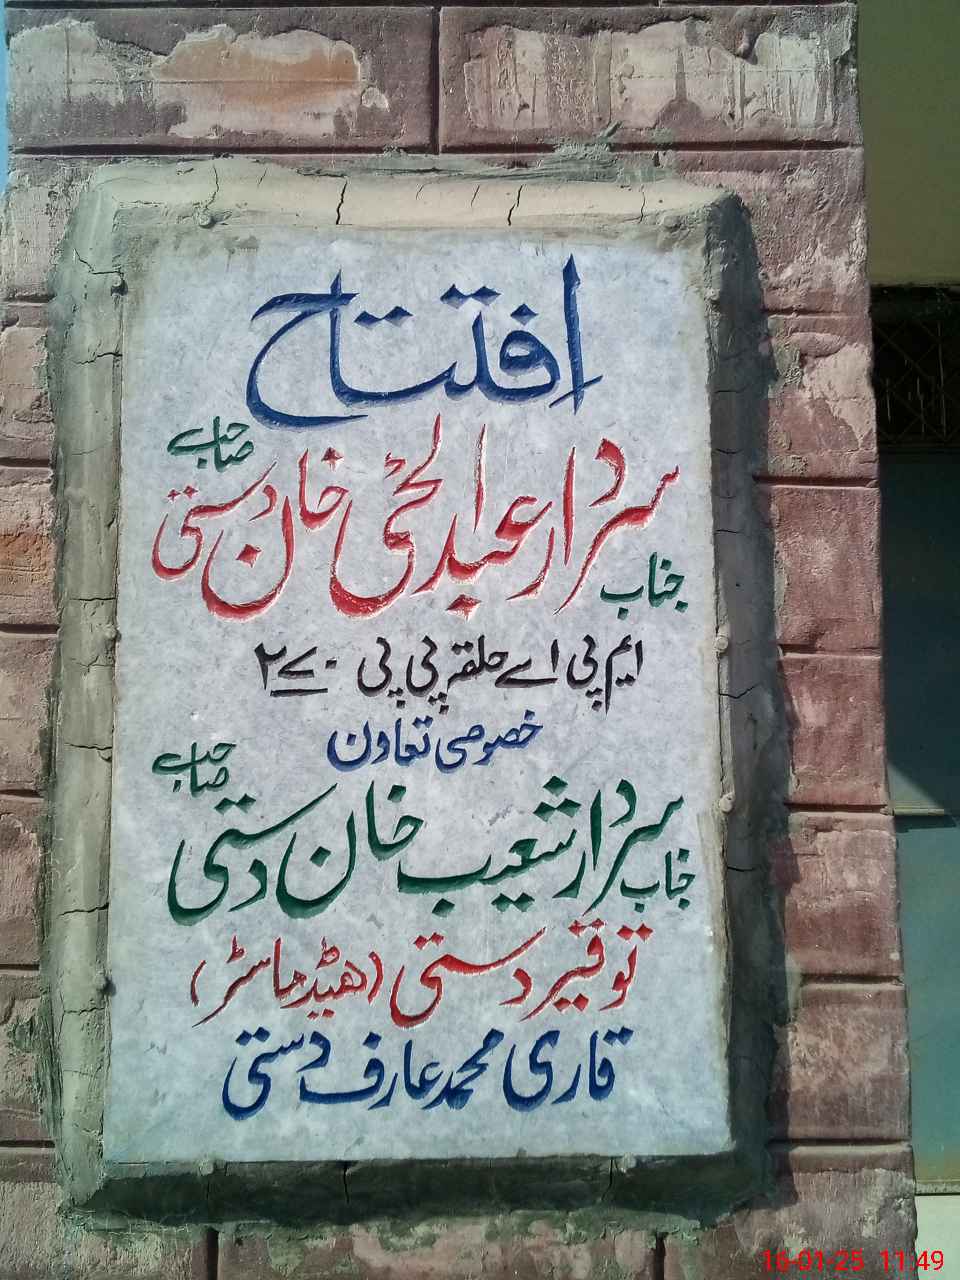 افتتاح
جناب سردار عبدالحئی خان دستی صاحب
ایم پی اے حلقہ پی پی ۲۷۰
خصوصی تعاون
جناب سردار شعیب خان دستی صاحب
توقیر دستی (ھیڈ ماسٹر)
قاری محمد عارف دستی
16-01-25 11:49